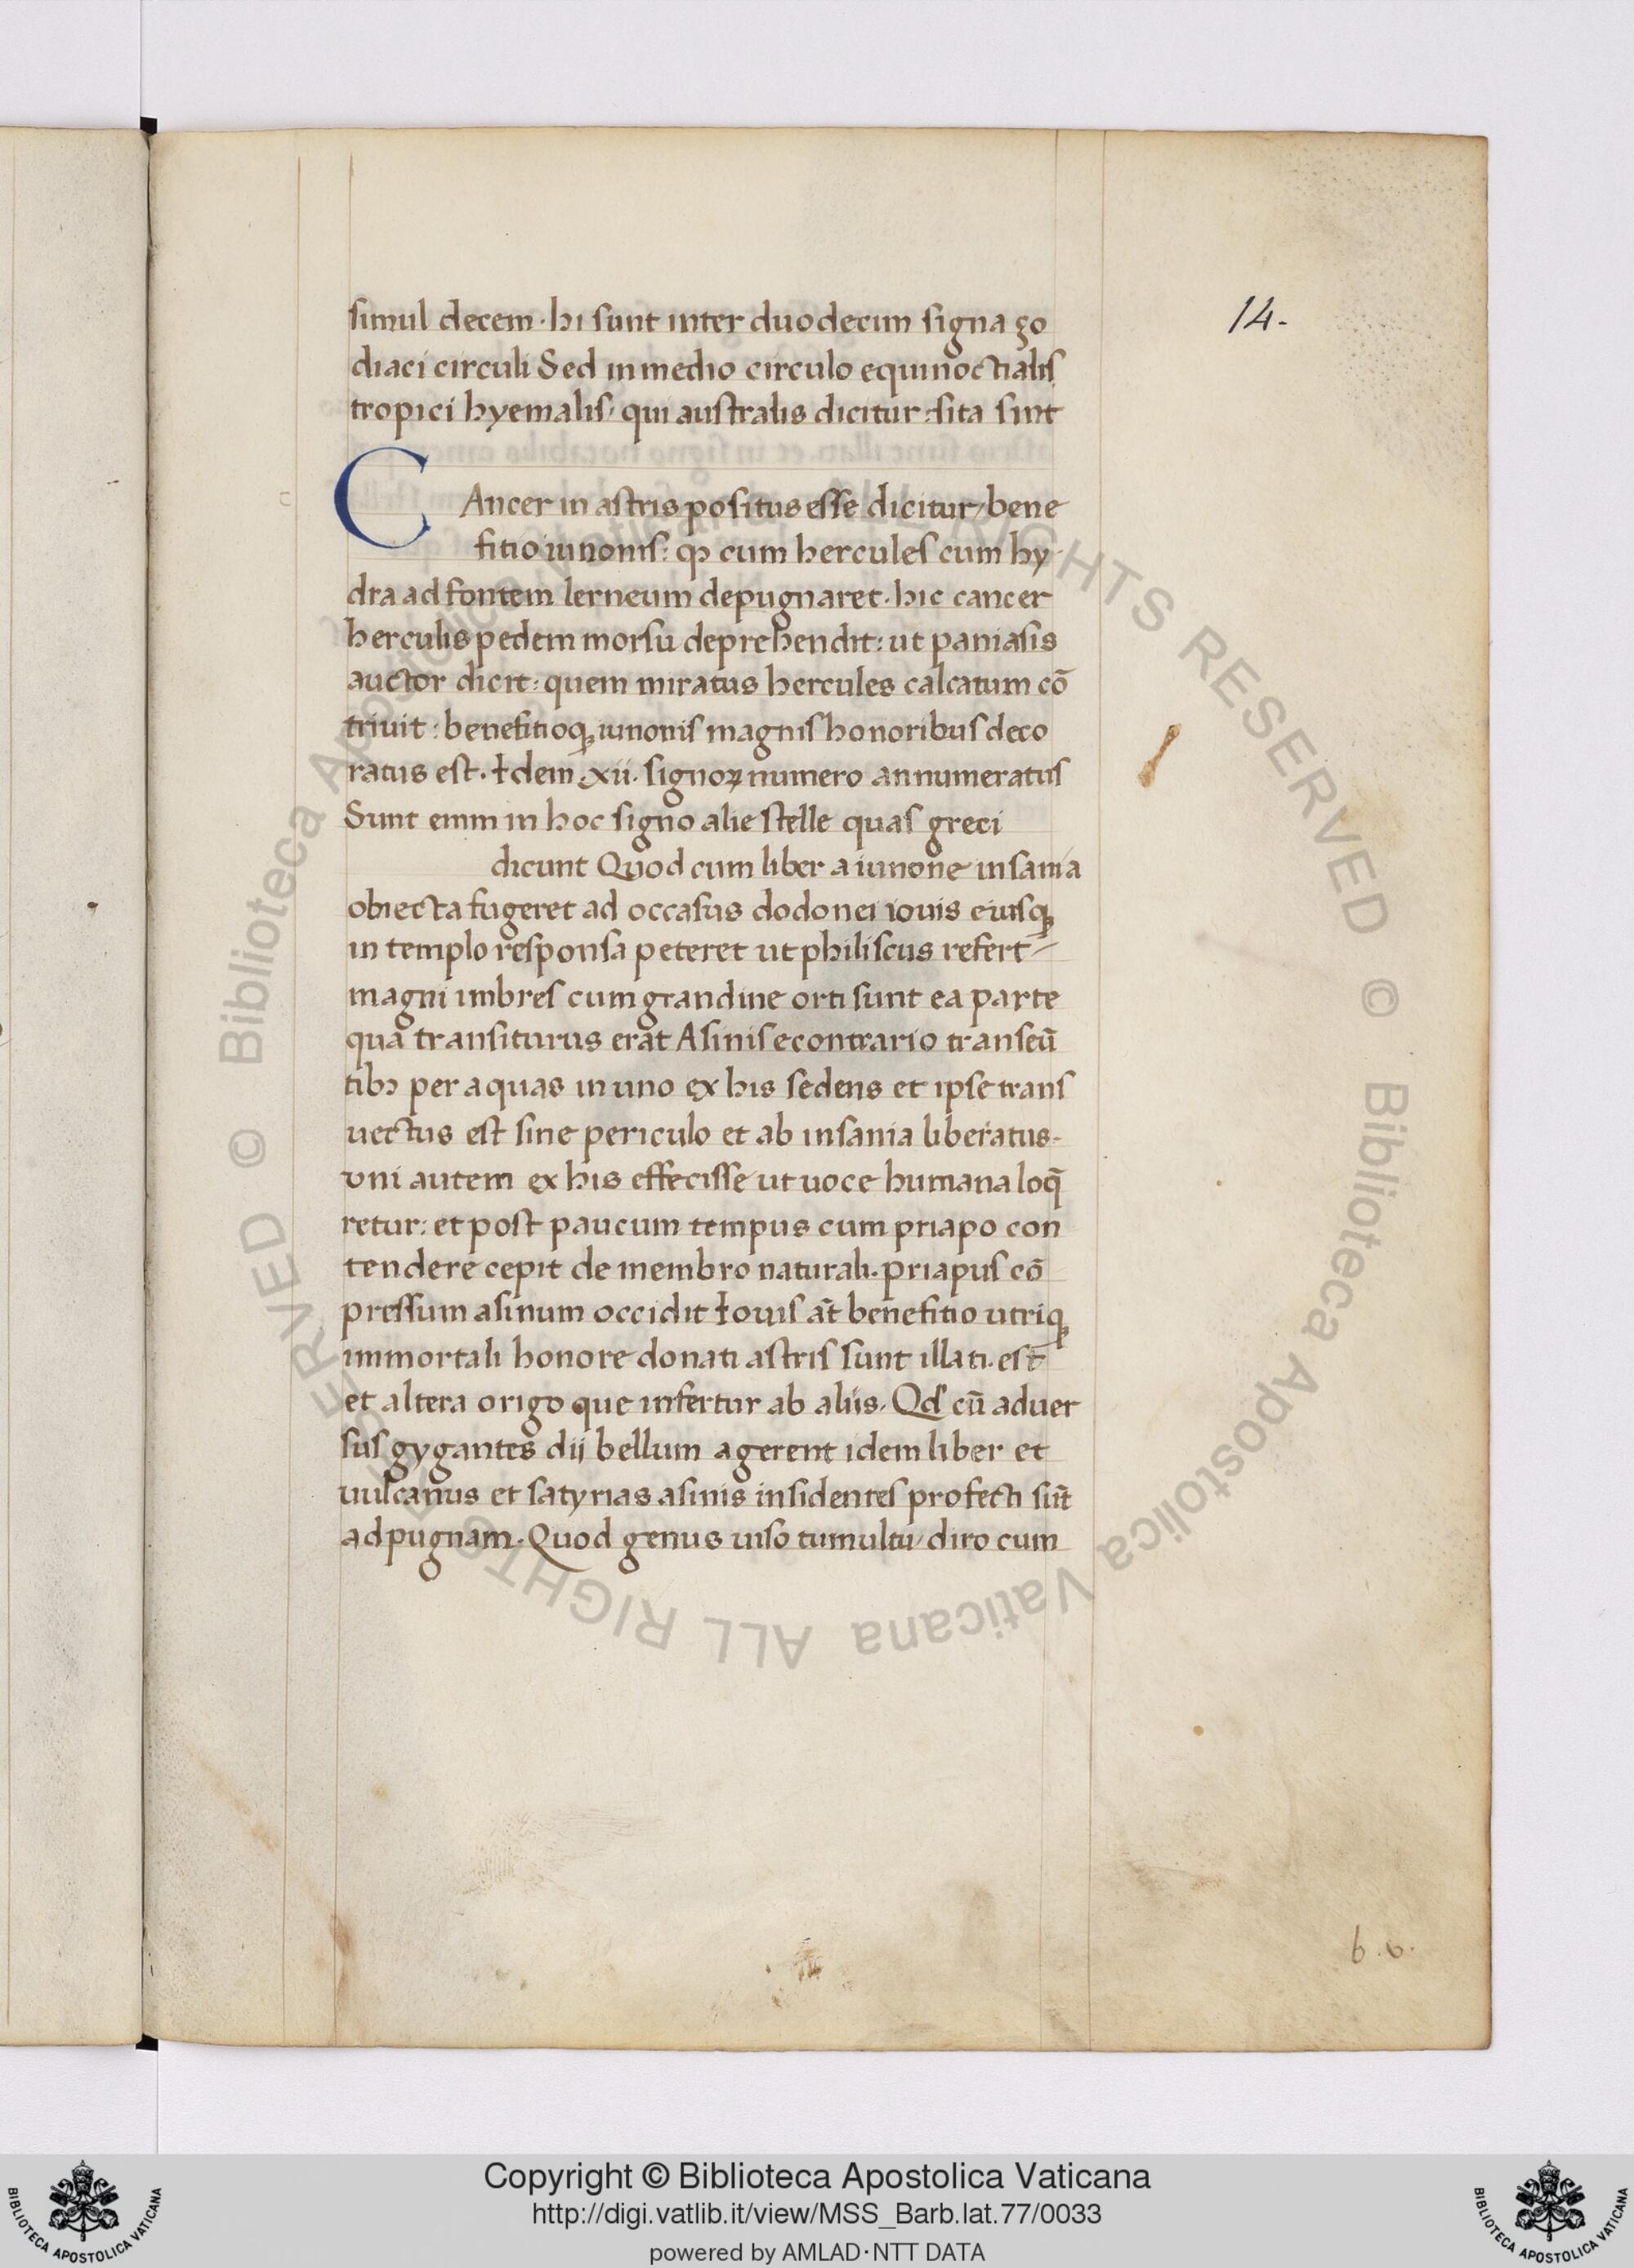 14.
simul decem · hi sunt inter duodecim signa ço
diaci circuli Sed in medio circulo equinoctialis
tropici hyemalis, qui australis dicitur: sita sint
C
Ancer in astris positus esse dicitur, bene
fitio iunonis: ꝙ cum hercules cum hy
dra ad fontem lerneum depugnaret · hic cancer
herculis pedem morsu deprehendit: ut paniasis
auctor dicit: quem miratus hercules calcatum cō
triuit: benefitioqꝫ iunonis magnis honoribus deco
ratus est. Idem .xii. signoꝝ numero annumeratus
Sunt enim in hoc signo alie stelle quas greci
dicunt Quod cum liber a iunone insania
obiecta fugeret ad occasus dodonei iouis eiusqꝫ
in templo responsa peteret ut philiscus refert
magni imbres cum grandine orti sunt ea parte
qua transiturus erat Asinis econtrario transeū
tibꝫ per aquas in uno ex his sedens et ipse trans
uectus est sine periculo et ab insania liberatus.
vni autem ex his effecisse ut uoce humana loq̄
retur: et post paucum tempus cum priapo con
tendere cepit de membro naturali. priapus cō
pressum asinum occidit Iouis aт̄ benefitio utriqꝫ
immortali honore donati astris sunt illati. est
et altera origo que infertur ab aliis. Qd' cū aduer
sus gygantes dij bellum agerent idem liber et
uulcanus et satyrias asinis insidentes profecti sūt
ad pugnam. Quod genus uiso tumultu, diro cum
b . 6 .
Copyright © Biblioteca Apostolica Vaticana
http://digi.vatlib.it/view/MSS_Barb.lat.77/0033
powered by AMLAD·NTT DATA
BIBLIOTECA APOSTOLICA VATICANA
BIBLIOTECA APOSTOLICA VATICANA
© Biblioteca Apostolica Vaticana ALL RIGHTS RESERVED © Biblioteca Apostolica Vaticana ALL RIGHTS RESERVED